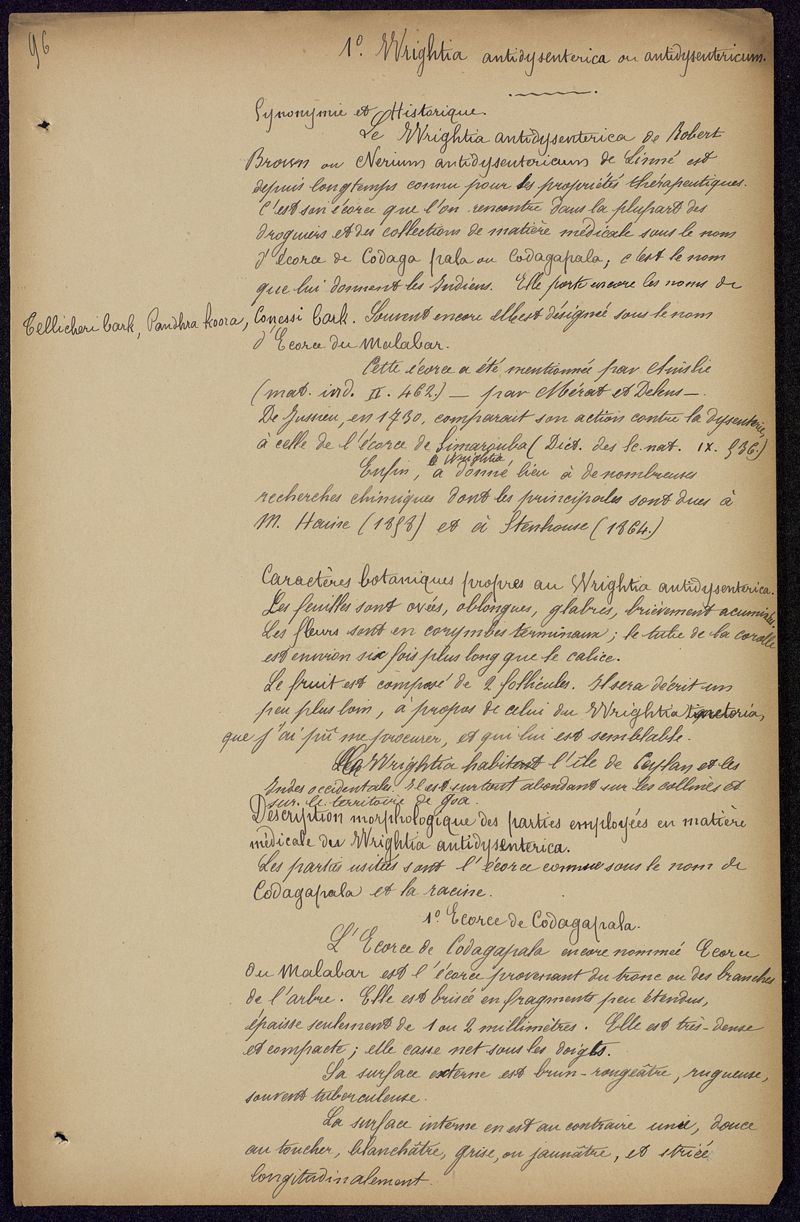 96
1º. Wrightia antidysenterica ou antidysentericum.
Synonymie et Historique.
Le Wrightia antidysenterica de Robert
Brown ou Nerium antidysentericum de Linné est
depuis longtemps connu pour les propriétés thérapeutiques.
C'est son écorce que l'on rencontre dans la plupart des
droguiers et des collections de matière médicale sous le nom
d'écorce de Codaga pala ou Codagapala, c'est le nom
que lui donnent les Indiens. Elle porte encore les noms de
Tellicheri bark, Pandhra koora, Conessi bark. Souvent encore elle est désignée sous le nom
d'Ecorce du Malabar.
Cette écorce a été mentionnée par Ainslie
(mat. ind. II. 462.) — par Mérat et Delens —.
De Jussieu, en 1730, comparait son action contre la dysenterie,
à celle de l'écorce de Simarouba (Dict. des Sc. nat. IX. 536.)
Enfin, le Wrightia a donné lieu à de nombreuses
recherches chimiques dont les principales sont dues à
M. Haine (1858) et à Stenhouse (1864.)
Caractères botaniques propres au Wrightia antidysenterica.
Les feuilles sont ovées, oblongues, glabres, brièvement acuminées.
Les fleurs sont en corymbes terminaux; le tube de la corolle
est environ six fois plus long que le calice.
Le fruit est composé de 2 follicules. Il sera décrit un
peu plus loin, à propos de celui du Wrightia tinctoria,
que j'ai pû me procurer, et qui lui est semblable.
Wrightia habitent l'île de Ceylan et les
Indes occidentales. Il est surtout abondant sur les collines et
sur le territoire de Goa.
Description morphologique des parties employées en matière
médicale du Wrightia antidysenterica.
Les parties usitées sont l'écorce connue sous le nom de
Codagapala et la racine.
1º Ecorce de Codagapala.
L'Ecorce de Codagapala encore nommée Ecorce
du Malabar est l'écorce provenant du tronc ou des branches
de l'arbre. Elle est brisée en fragments peu étendus,
épaisse seulement de 1 ou 2 millimètres. Elle est très-dense
et compacte; elle casse net sous les doigts.
Sa surface externe est brun-rougeâtre, rugueuse,
souvent tuberculeuse.
La surface interne en est au contraire unie, douce
au toucher, blanchâtre, grise, ou jaunâtre, et striée
longitudinalement.